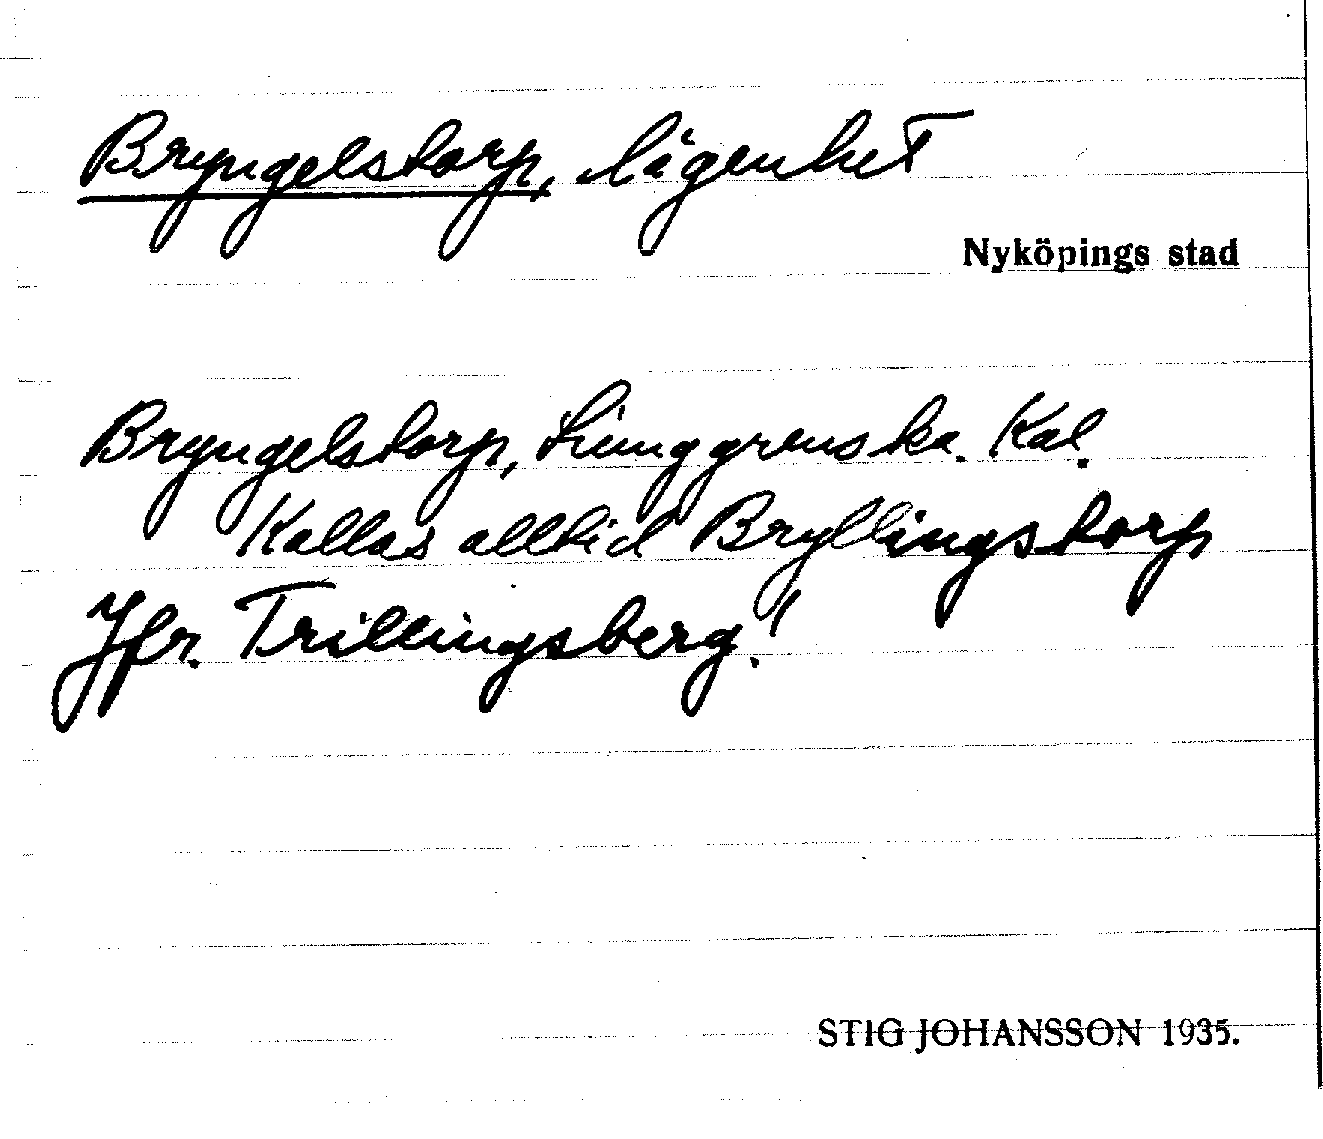 Bryngelstorp, lägenhet
Nyköpings stad
Bryngelstorp, Ljunggrenska. Kal.
Kallas alltid Bryllingstorp
Jfr. Trillingsberg!
STIG JOHANSSON 1935.